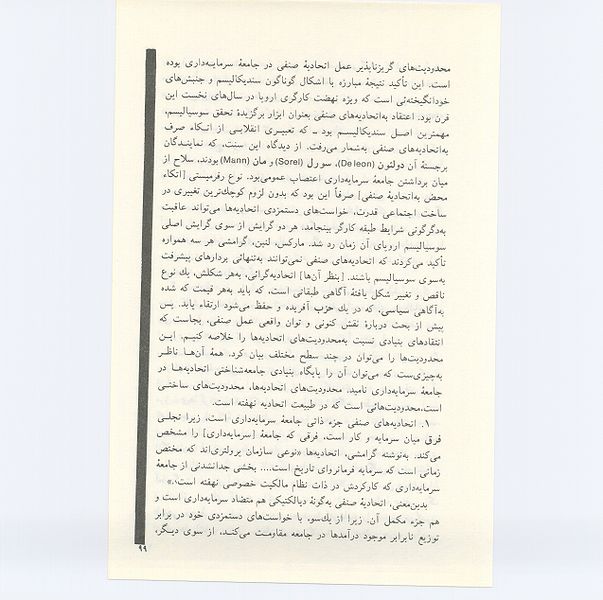 محدودیت‌های گریزناپذیر عمل اتحادیهٔ صنفی در جامعهٔ سرمایـه‌داری بوده
است. این تأکید نتیجهٔ مبارزه با اشکال گوناگون سندیکالیسم و جنبش‌های
خودانگیخته‌ئی است که ویژه نهضت کارگری اروپا در سال‌های نخست این
قرن بود. اعتقاد به‌اتحادیه‌های صنفی بعنوان ابزار برگزیدهٔ تحقق سوسیالیسم،
مهمترین اصـل سندیکالیسـم بود ــ که تعبیـری انقلابـی از اتـکاء صرف
به‌اتحادیه‌های صنفی به‌شمار می‌رفت. از دیدگاه این سنت، که نمایندگان
برجستهٔ آن دولئون (De leon)، سورل (Sorel) و مان (Mann) بودند، سلاح از
میان برداشتن جامعهٔ سرمایه‌داری اعتصاب عمومی‌بود. نوع رفرمیستی [اتکاء
محض به‌اتحادیهٔ صنفی] صرفاً این بود که بدون لزوم کوچک‌ترین تغییری در
ساخت اجتماعی قدرت، خواست‌های دستمزدی اتحادیه‌ها می‌تواند عاقبت
به‌دگرگونی شرایط طبقه کارگر بینجامد. هر دو گرایش از سوی گرایش اصلی
سوسیالیسم اروپای آن زمان رد شد. مارکس، لنین، گرامشی هر سه همواره
تأکید می‌کردند که اتحادیه‌های صنفی نمی‌توانند به‌تنهائی بردارهای پیشرفت
به‌سوی سوسیالیسم باشند. [بنظر آن‌ها] اتحادیه‌گرائی، به‌هر شکلش، یك نوع
ناقص و تغییر شکل یافتهٔ آگاهی طبقاتی است، که باید به‌هر قیمت که شده
به‌آگاهی سیاسی، که در یك حزب آفریده و حفظ می‌شود ارتقاء یابد. پس
پیش از بحث دربارهٔ نقش کنونی و توان واقعی عمل صنفی، بجاست که
انتقادهای بنیادی نسبت به‌محدودیت‌های اتحادیه‌ها را خلاصه کنیـم. ایـن
محدودیت‌ها را می‌توان در چند سطح مختلف بیان کرد. همهٔ آن‌هـا ناظـر
به‌چیزی‌ست که می‌توان آن را پایگاه بنیادی جامعه‌شناختی اتحادیه‌هـا در
جامعهٔ سرمایه‌داری نامید. محدودیت‌های اتحادیه‌ها، محدودیت‌های ساختـی
است، محدودیت‌هائی است که در طبیعت اتحادیه نهفته است.
۱. اتحادیه‌های صنفی جزء ذاتی جامعهٔ سرمایه‌داری است، زیرا تجلـی
فرق میان سرمایه و کار است، فرقی که جامعهٔ [سرمایه‌داری] را مشخص
می‌کند. به‌نوشته گرامشی، اتحادیه‌ها «نوعی سازمان پرولتری‌اند که مختص
زمانی است که سرمایه فرمانروای تاریخ است.... بخشی جدانشدنی از جامعهٔ
سرمایه‌داری که کارکردش در ذات نظام مالکیت خصوصی نهفته است.»
بدین‌معنی، اتحادیهٔ صنفی به‌گونهٔ دیالکتیکی هم متضاد سرمایه‌داری است و
هم جزء مکمل آن. زیرا از یك‌سو، با خواست‌های دستمزدی خود در برابر
توزیع نابرابر موجود درآمدها در جامعه مقاومت می‌کنـد، از سوی دیگـر،
۹۹